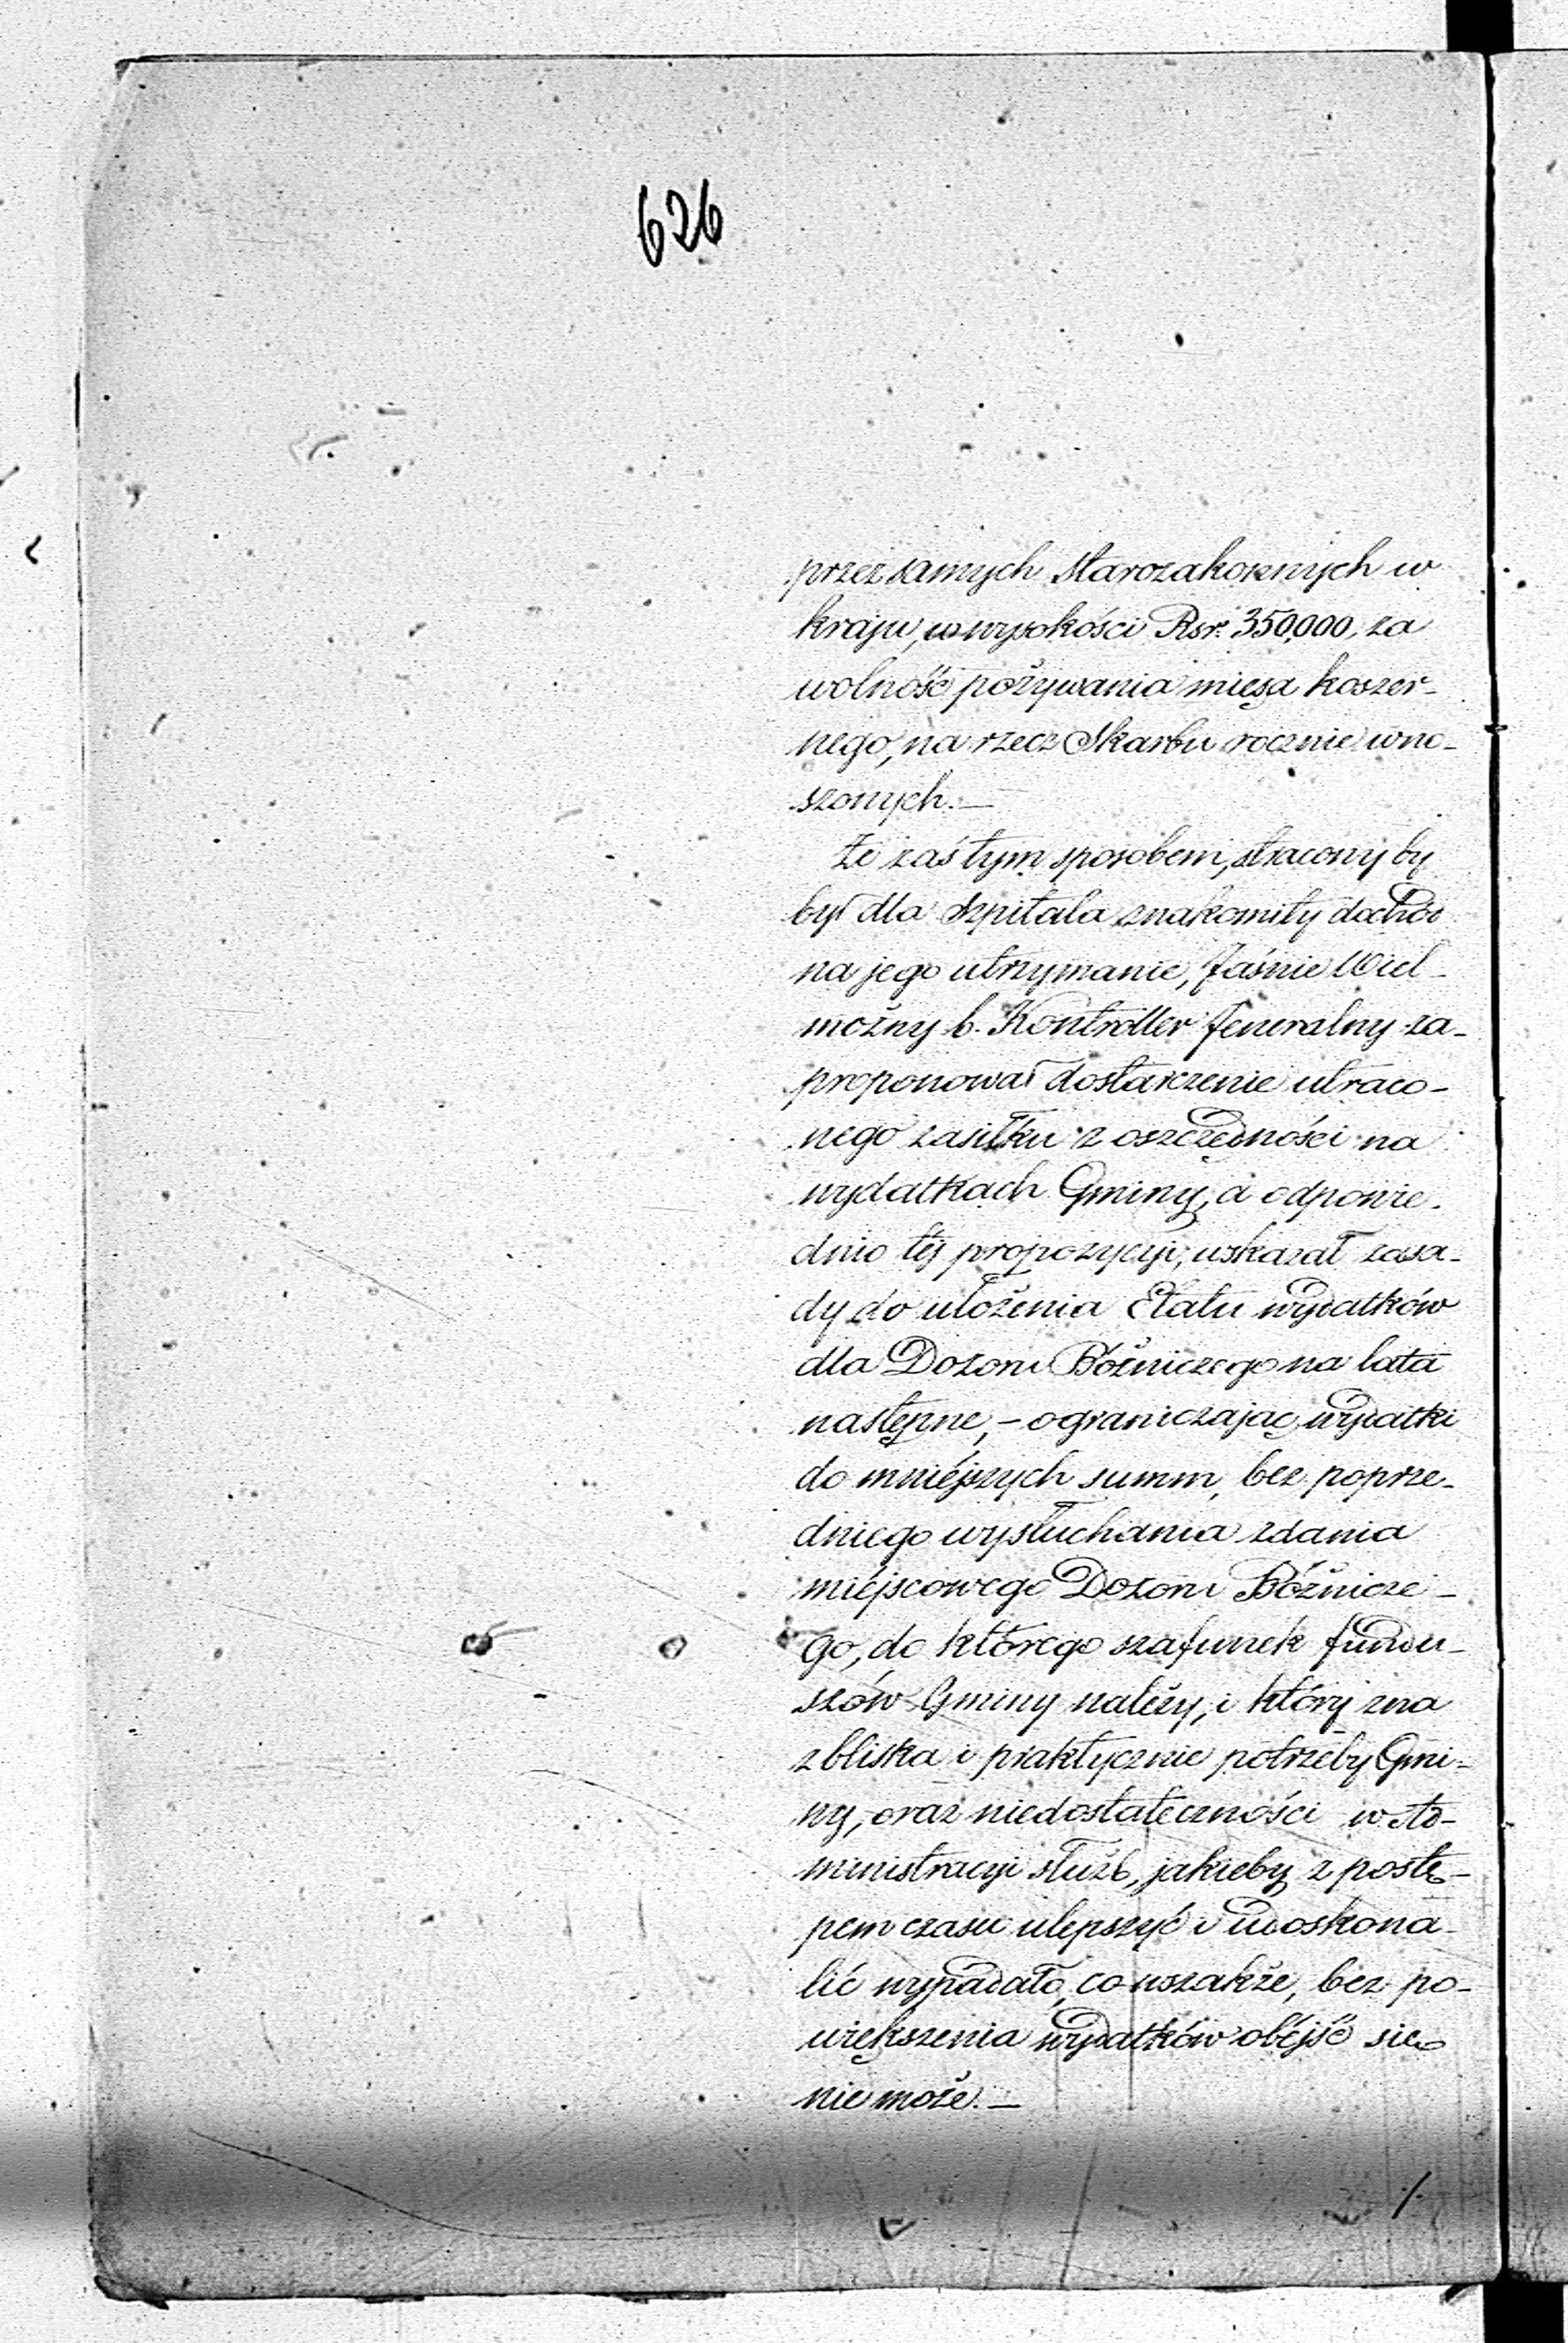 626
przez samych starozakonnych w
kraju, w wysokości Rsr. 350,000, za
wolność pożywania mięsa koszer-
nego, na rzecz Skarbu rocznie wno-
szonych.—
Że zaś tym sposobem, stracony by
był dla Szpitala znakomity dochód
na jego utrzymanie, Jaśnie Wiel-
możny b. Kontroller Jeneralny za-
proponował dostarczenie utraco-
nego zasiłku z oszczędności na
wydatkach Gminy, a odpowie-
dnio téj propozycyi, wskazał zasa-
dy do ułożenia Etatu wydatków
dla Dozoru Bóżniczego na lata
następne, – ograniczając wydatki
do mniéjszych summ, bez poprze-
dniego wysłuchania zdania
miéjscowego Dozoru Bóżnicze-
go, do którego szafunek fundu-
szów Gminy należy, i który zna
zbliska i praktycznie potrzeby Gmi-
ny, oraz niedostateczności w Ad-
ministracyi służb, jakieby z postę-
pem czasu ulepszyć i udoskona-
lić wypadało, co wszakże, bez po-
większenia wydatków obéjść się
nie może.—
./.